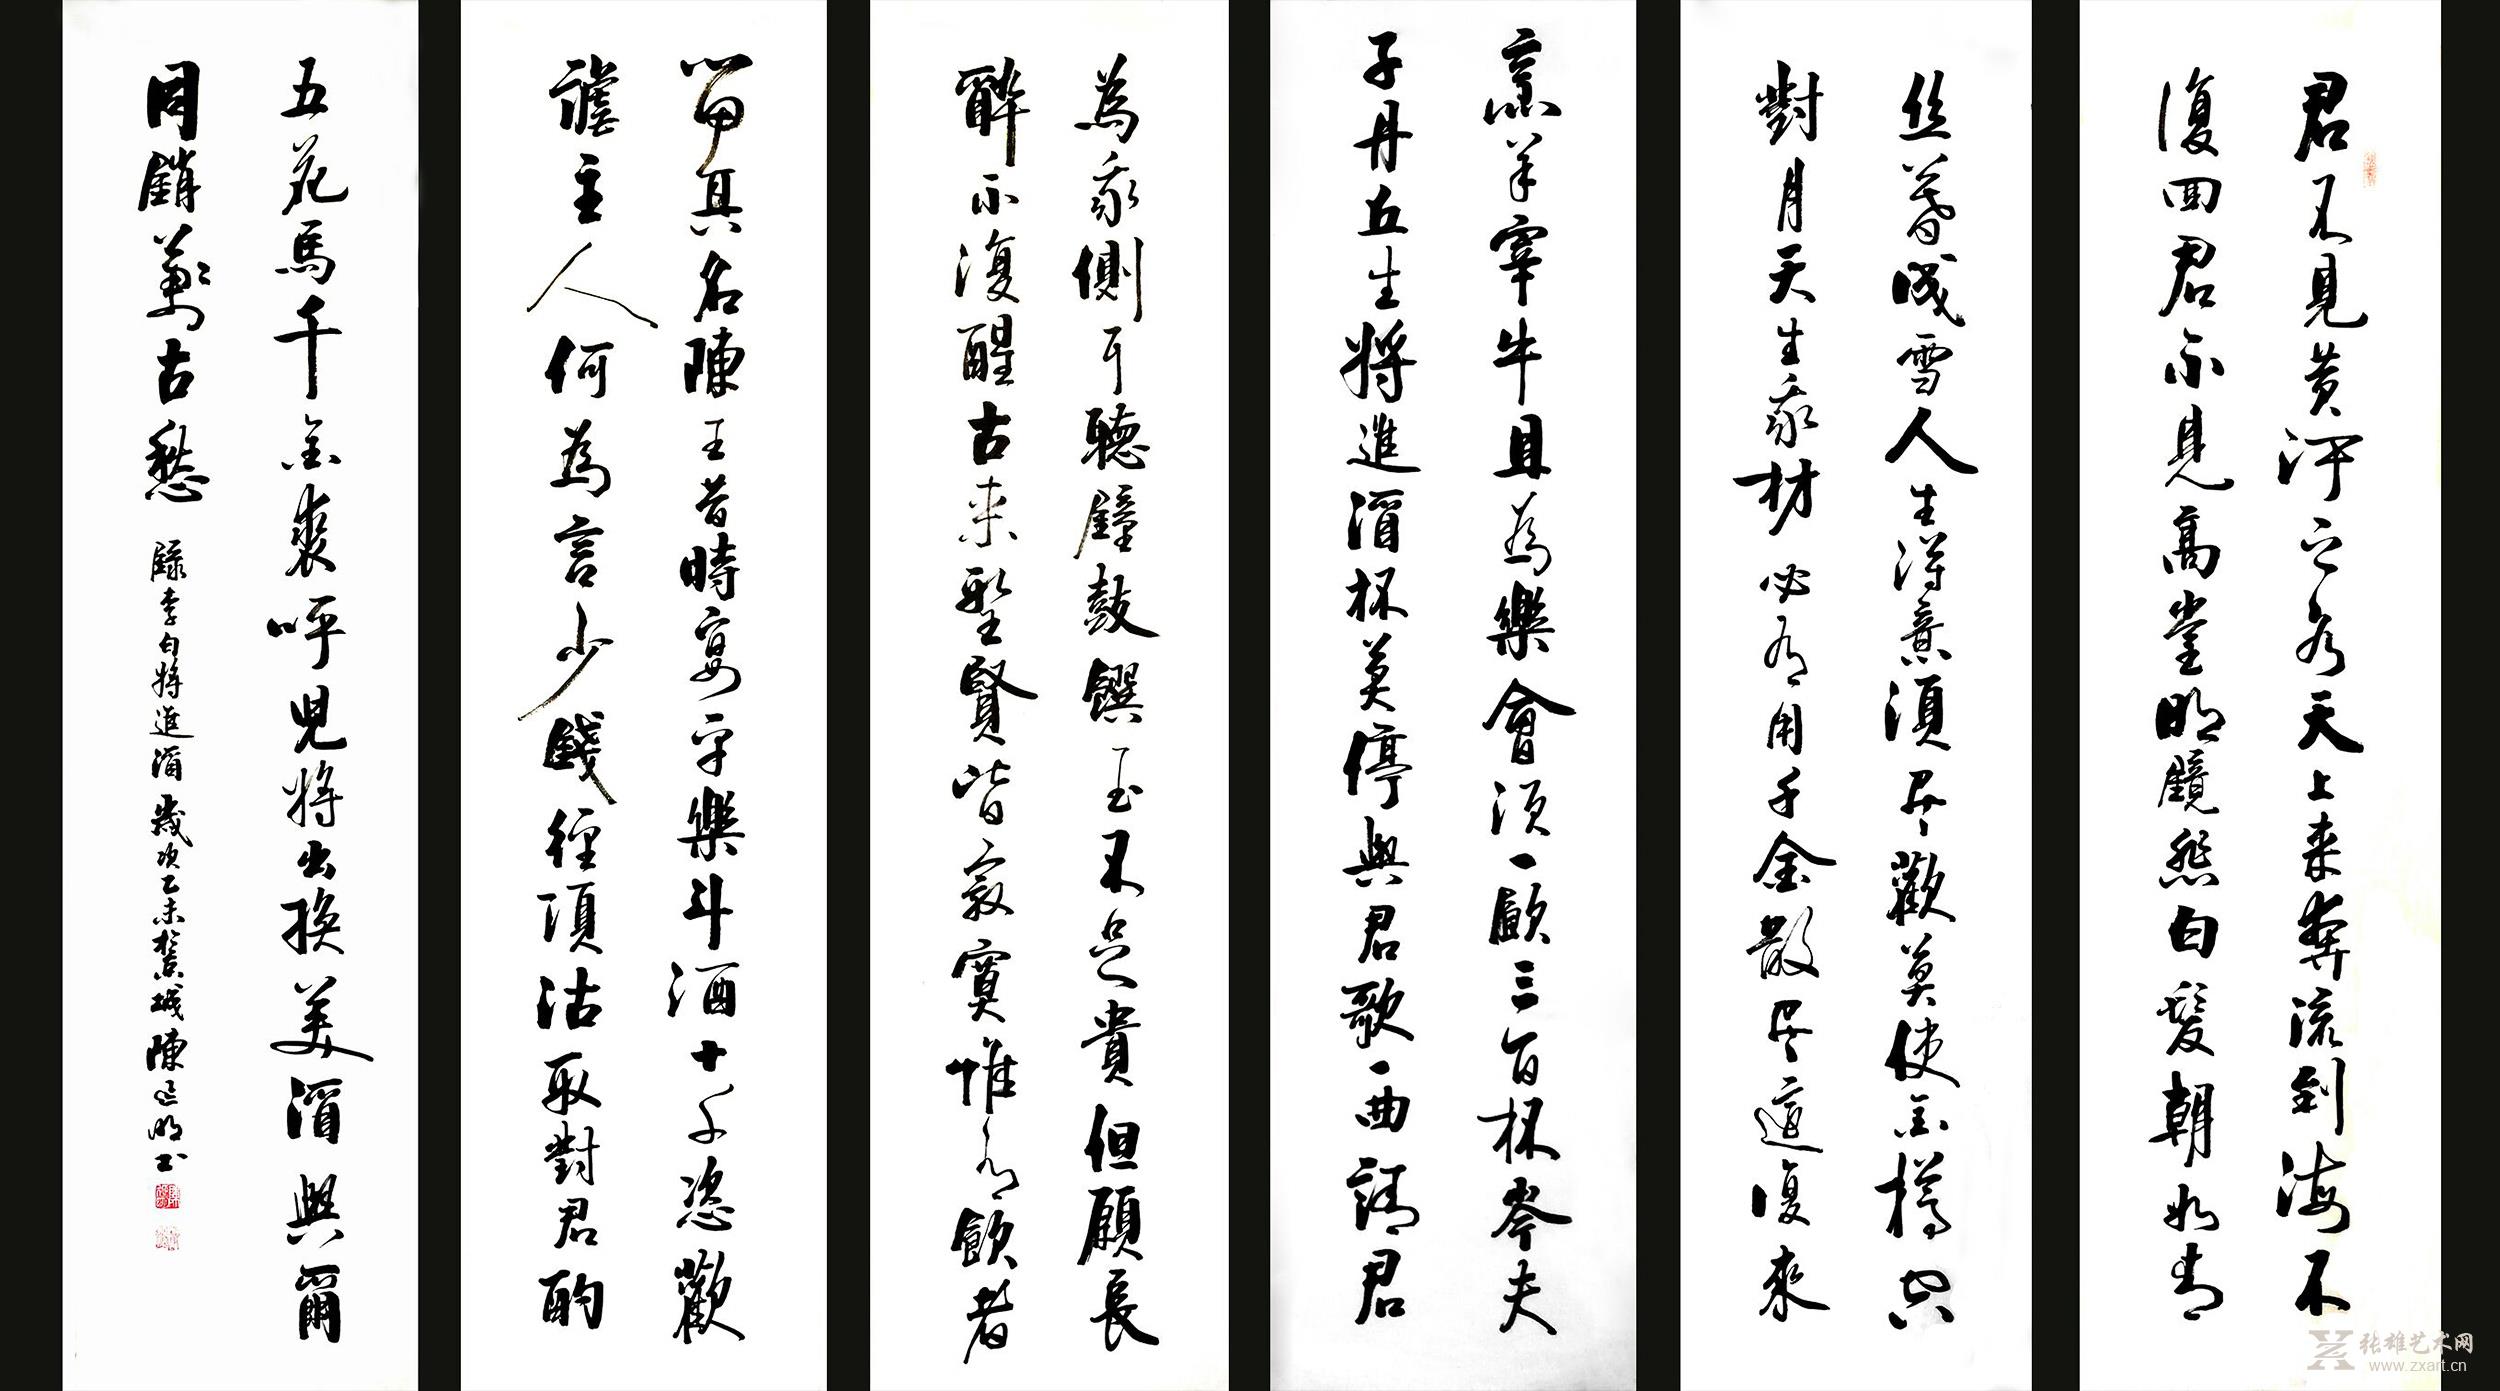 君不見黄河之水天上来奔流到海不
復回君不見高堂明鏡悲白髮朝如青
丝暮成雪人生得意須尽歡莫使金樽空
對月天生我材必有用千金散尽還復來
烹羊宰牛且為樂會須一飲三百杯岑夫
子丹丘生將進酒杯莫停與君歌一曲請君
為我側耳聽鐘鼓饌玉不足貴但願長
醉不復醒古来聖賢皆寂寞惟有飲者
留其名陳王昔時宴平樂斗酒十千恣歡
謔主人何為言少錢徑須沽取對君酌
五花馬千金裘呼児將出換美酒與爾
同銷萬古愁 録李白將進酒 歲次乙未於城陳明书
张雄艺术网
www.zxart.cn